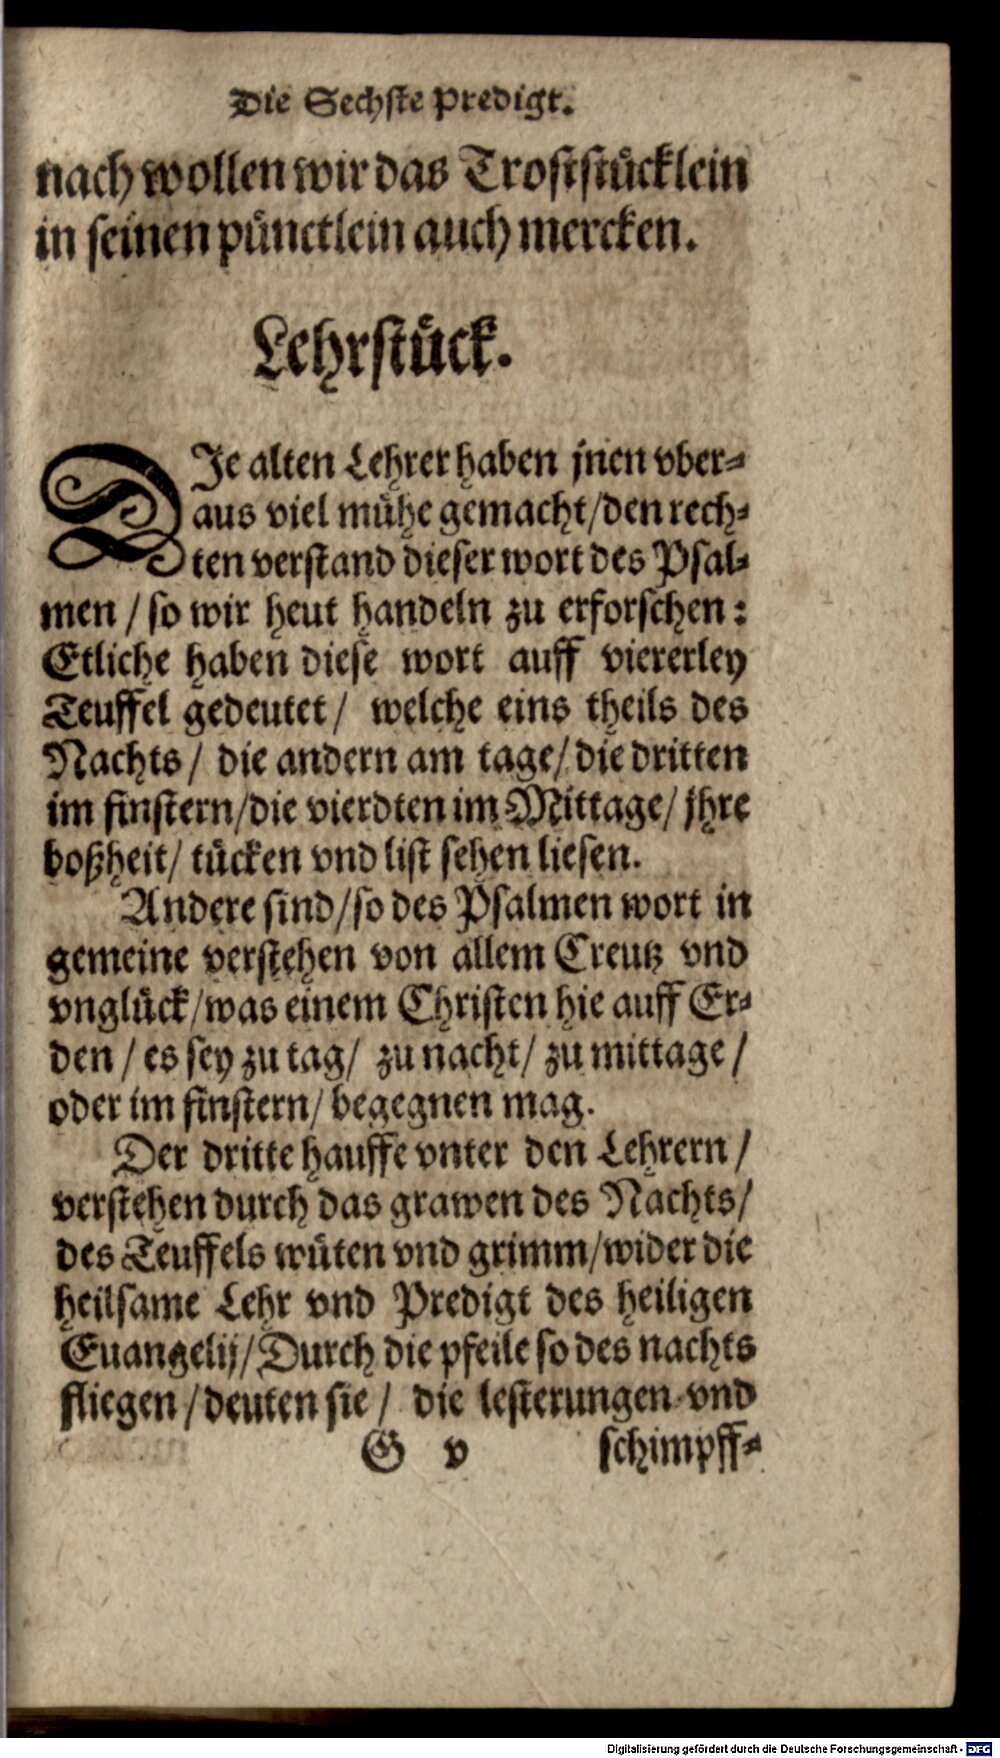 Die Sechste Predigt.
nach wollen wir das Troststücklein
in seinen pünctlein auch mercken.
Lehrstück.
DIe alten Lehrer haben jnen vber-
aus viel mühe gemacht/den rech-
ten verstand dieser wort des Psal-
men / so wir heut handeln zu erforschen:
Etliche haben diese wort auff viererley
Teuffel gedeutet/ welche eins theils des
Nachts/ die andern am tage/ die dritten
im finstern/die vierdten im Mittage/ jhre
boßheit/ tücken vnd list sehen liesen.
Andere sind/so des Psalmen wort in
gemeine verstehen von allem Creutz vnd
vnglück/was einem Christen hie auff Er-
den / es sey zu tag/ zu nacht/ zu mittage /
oder im finstern/ begegnen mag.
Der dritte hauffe vnter den Lehrern /
verstehen durch das grawen des Nachts/
des Teuffels wüten vnd grimm/wider die
heilsame Lehr vnd Predigt des heiligen
Euangelij/Durch die pfeile so des nachts
fliegen / deuten sie / die lesterungen vnd
G v schimpff-
Digitalisierung gefördert durch die Deutsche Forschungsgemeinschaft - DFG